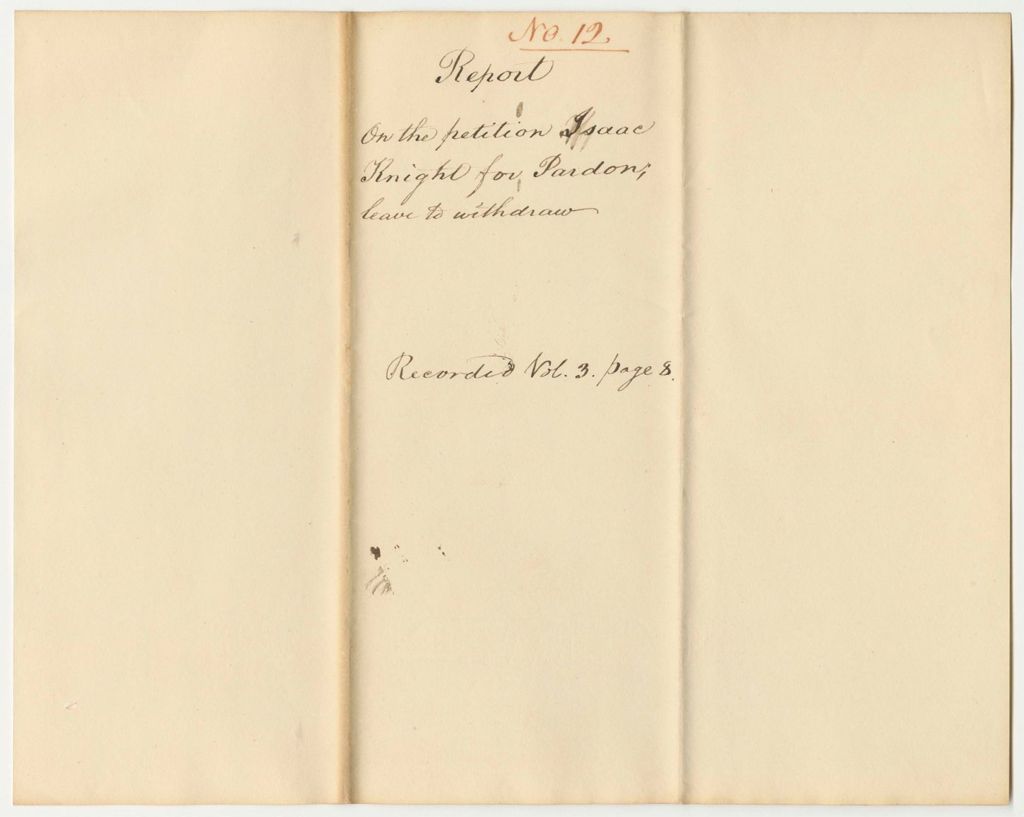 No. 12.
Report
On the petition Isaac
Knight for Pardon;
leave to withdraw
Recorded Vol. 3. page 8.